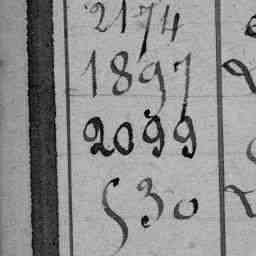 2174
1897
2099
530